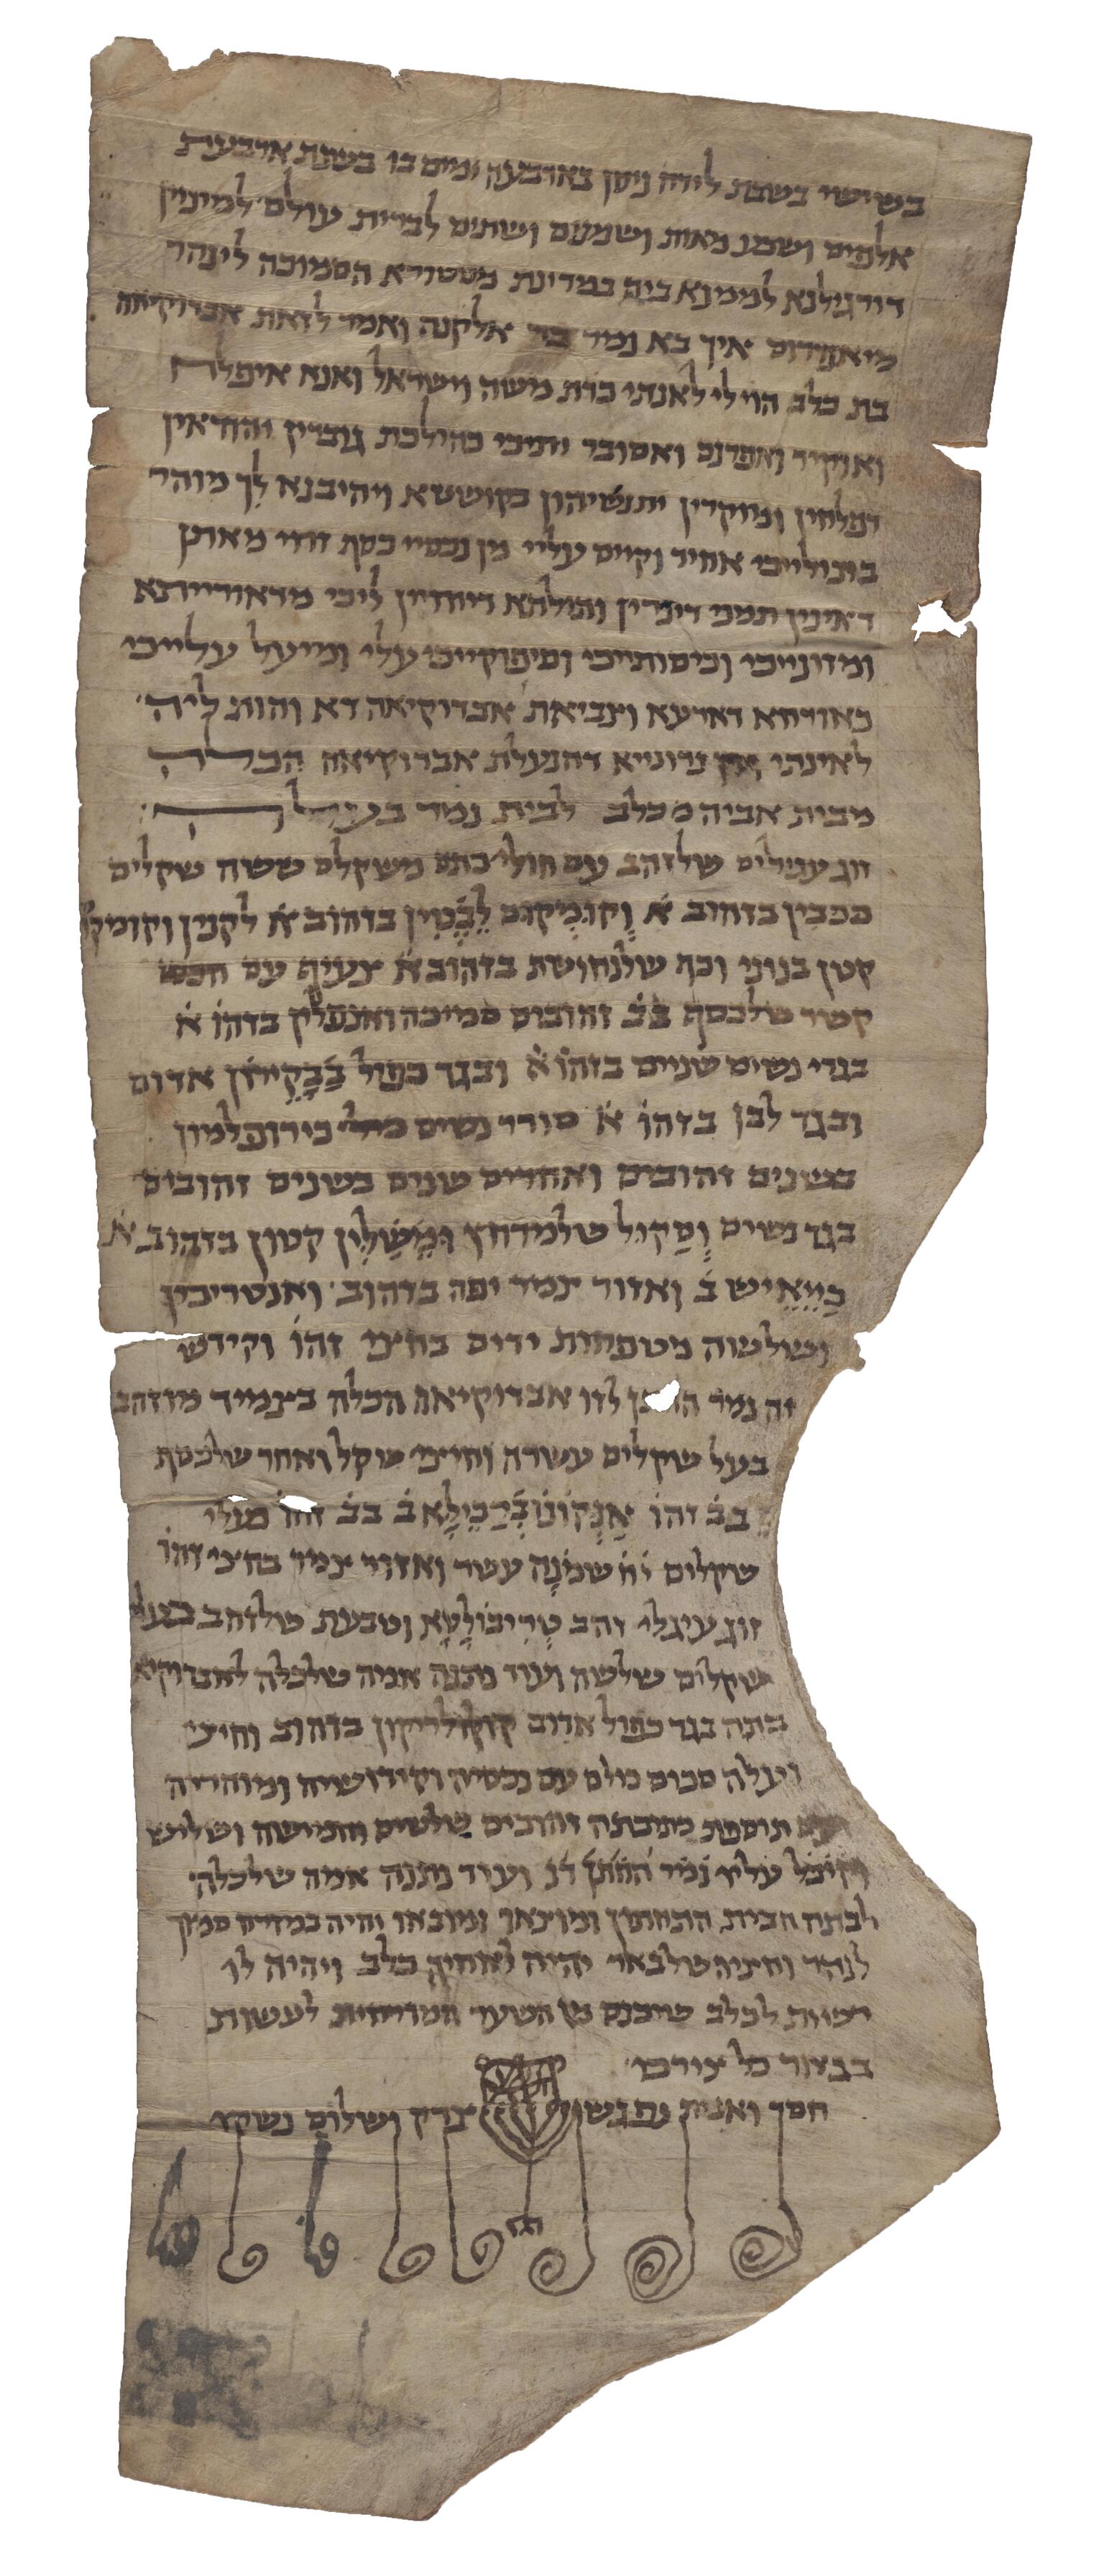 בשישי בשבת לירח ניסן בארבעה ימים בו בשנת ארבעת
אלפים ושמנ מאות ושמנים ושתים לברית עולם למיניין
דורגילנא לממנא ביה במדינת מסטורא הסמוכה לינהר
מיאנדרוס איך בא נמר בר אלקנה ואמר לזאת אבדוקיאה
בת כלב הוי לי לאנתי כדת משה וישראל ואנא איפלח
ואוקיר ואפרנס ואסובר יתיכי כהילכת גוברין יהודאין
דפלחין ומיוקרין יתנשיהון בקושטא ויהיבנא לך מוהר
בתולייכי אחיר וקיים עליי מן נכסיי כסף זוזי מאתן
דאינין תמני דינרין והולתא דיחזיין ליכי מדאורייתא
ומזונייכי וכיסותייכי וסיפוקייכי עלי ומיעל עלייכי
כאורחא דארעא וצביאת אבדוקיאה דא והות ליה
לאינתו נדונייא דהנעלת אבדוקיאה הכלה
מבית אביה מכלב לבית נמר בעלה
זוג עגילים שלזהב עם חולי כתם משקלם ששה שקלים
בזהוב א וקומקום לבטין בזהוב א לקנין וקומקום
קטן בנוני וכף שלנחושת בזהוב א צעיף עם חבש
קשר שלכסף בב זהובים סמיכה ואנפלין בזהו א
בגדי נשים שניים בזהו א ובגד כפול בבקירון אדום
ובגד לבן בזהו א סודר נשים כירופלמון
בשנים זהובים ואחרים שנים בשנים זהובים
בגד נשים וסקול שלמרחץ ומשלין קטון בזהוב א
במיאיש ב ואזור צמר יפה בזהוב ואנטריכין
ושלשוה מטפחות ידים בחיצי זהו וקידש
זה נמר החתן לזו אבדוקיאה הכלה בצמיד מוזהב
בעל שקלים עשרה וחיצי שקל ואחר שלכסף
בב זהו אנקונוברכילא ב בב זהו מעלי
שקלים יח שמנה עשר ואזור צמר בחצי זהו
זוג עיגלי זהב טריבולטא וטבעת שלזהב בעל
שקלים שלשה ועוד נתנה אמה שלכלה לאבדוקיא
בתה בגד כפול אדום קוקולריקון בזהוב וחיצי
ויעלה סכום כולם עם נכסיה וקידושיה ומוהריה
תוספת כתובתה זהובים שלשים וחמישה ושליש
וקיבל עליו נמר החתן דנ ועוד נתנה אמה שלכלה
לבתה הבית התחתון ומוצאו ומובאו והיה במזרח סמוך
לנהר וחיציה שלבאר יהיה לאחיה כלב ויהיה לו
רשות לכלב שיכנס מן השער המזרחית לעשות
בבאר כל צורכו
חסד ואמת נפגשו צדק ושלום נשקו